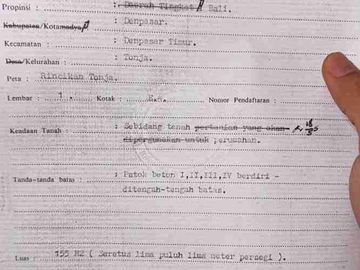 Propinsi : Daerah Tingkat I Bali.
Kabupaten/Kotamadya : Denpasar.
Kecamatan : Denpasar Timur.
Desa/Kelurahan : Tonja.
Peta : Rincikan Tonja.
Lembar : 1. Kotak : Nomor Pendaftaran :
Keadaan Tanah : Sebidang tanah pertanian yang akan
dipergunakan untuk perumahan.
Tanda-tanda batas : Patok beton I,II,III,IV berdiri -
ditengah-tengah batas.
Luas : 155 M2 ( Seratus lima puluh lima meter persegi ).